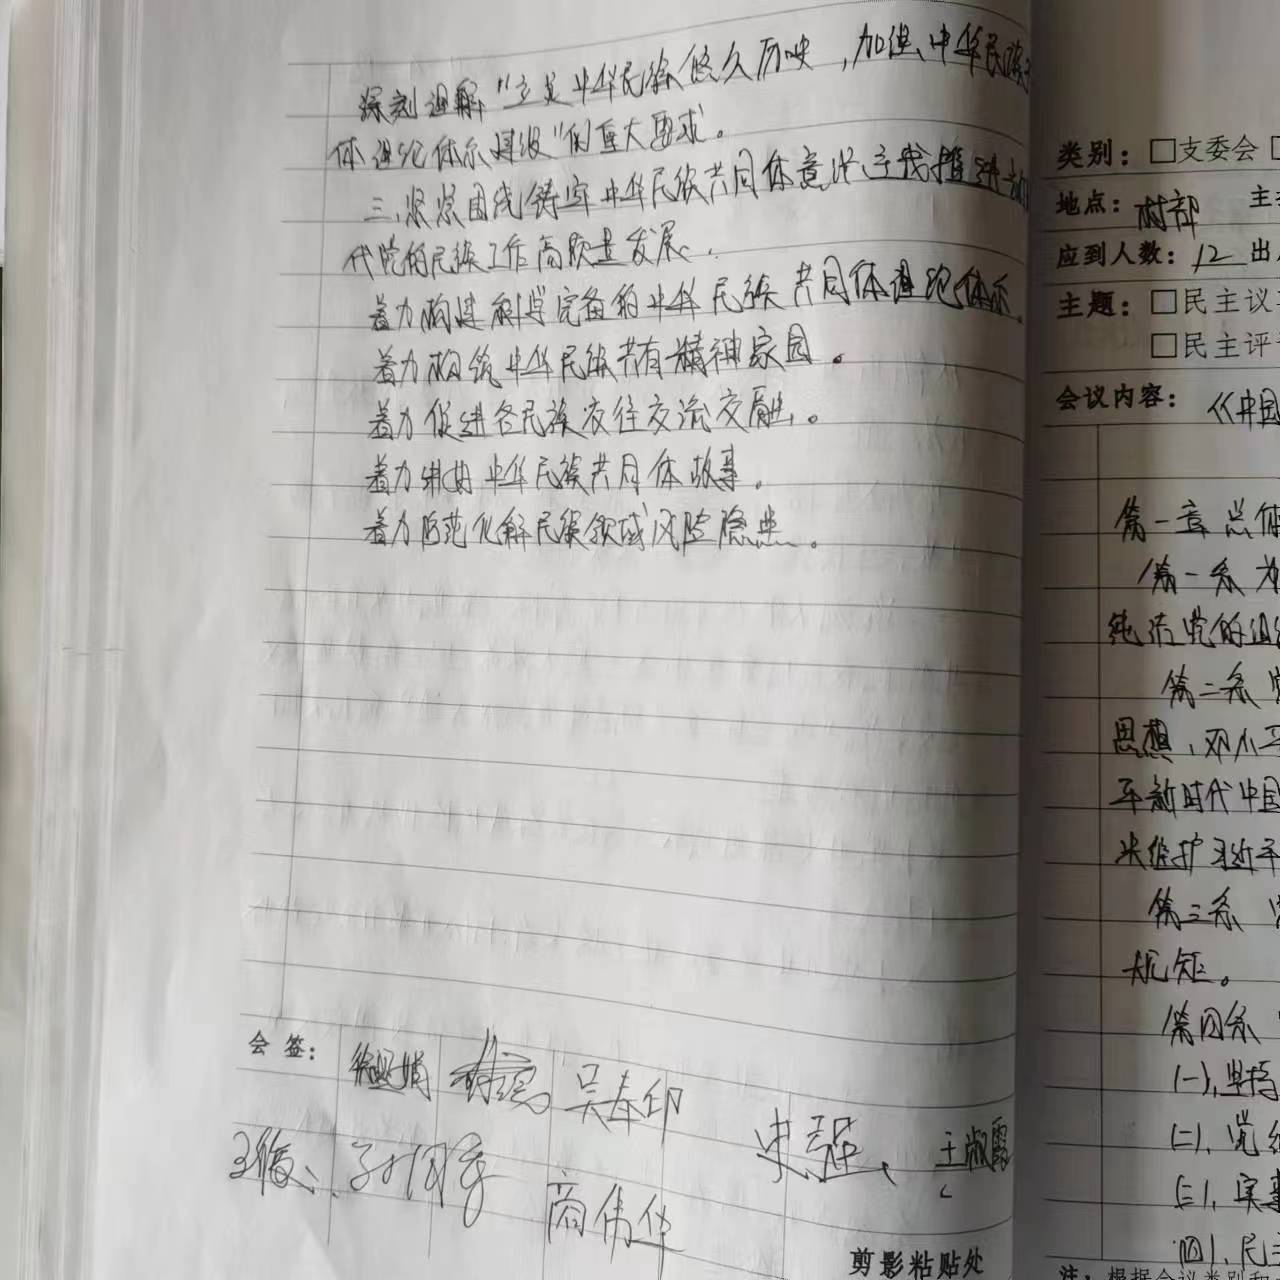 深刻理解"立足中华民族悠久历史,加快中华民族
体理论体系建设"的重大要求。
三、紧紧围绕铸牢中华民族共同体意识主线推进
代党的民族工作高质量发展.
着力构建科学完备的中华民族共同体理论体系.
着力构筑中华民族共有精神家园。
着力促进各民族交往交流交融。
着力讲好中华民族共同体故事。
着力防范化解民族领域风险隐患。
会签:
吴春印
王淑霞
商伟华
剪影粘贴处
类别:□支委会
地点:村部 主
应到人数:12 出
主题:□民主议
□民主评
会议内容:《中国
第一章 总体
第一条 为
纯洁党的组
第二条 党
思想,邓小平
平新时代中国
决维护习近平
第三条
规矩。
第四条
(一)、坚持
(二)、党
(三)、实事
(四)、民主
注:根据会议类别和